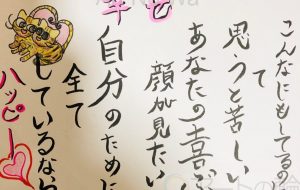 こんなにもしてるの
て
思うと苦しい
あなたの喜ぶ
顔が見たい
自分のために
全て
しているなら
ハッピー